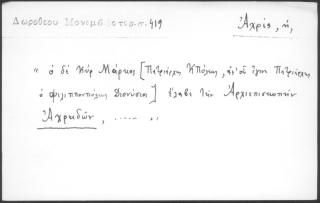 Δωροθέου Μονεμβ σ. 419
Ἀχρίς, ἡ,
" ὁ δὲ Κὺρ Μάρκος [Πατριάρχης ΚΠόλεως, ἐφ' οὗ ἔγινε Πατριάρχης
ὁ Φιλιππουπόλεως Διονύσιος] ἔλαβε τὴν Ἀρχιεπισκοπὴν
Ἀχριδῶν, ...... "